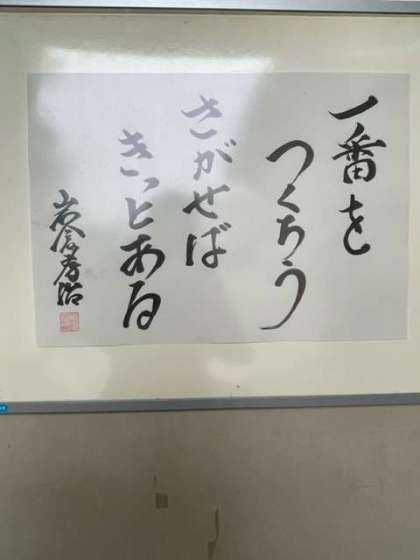 一番を
つくろう
さがせば
きっとある
岩倉秀治